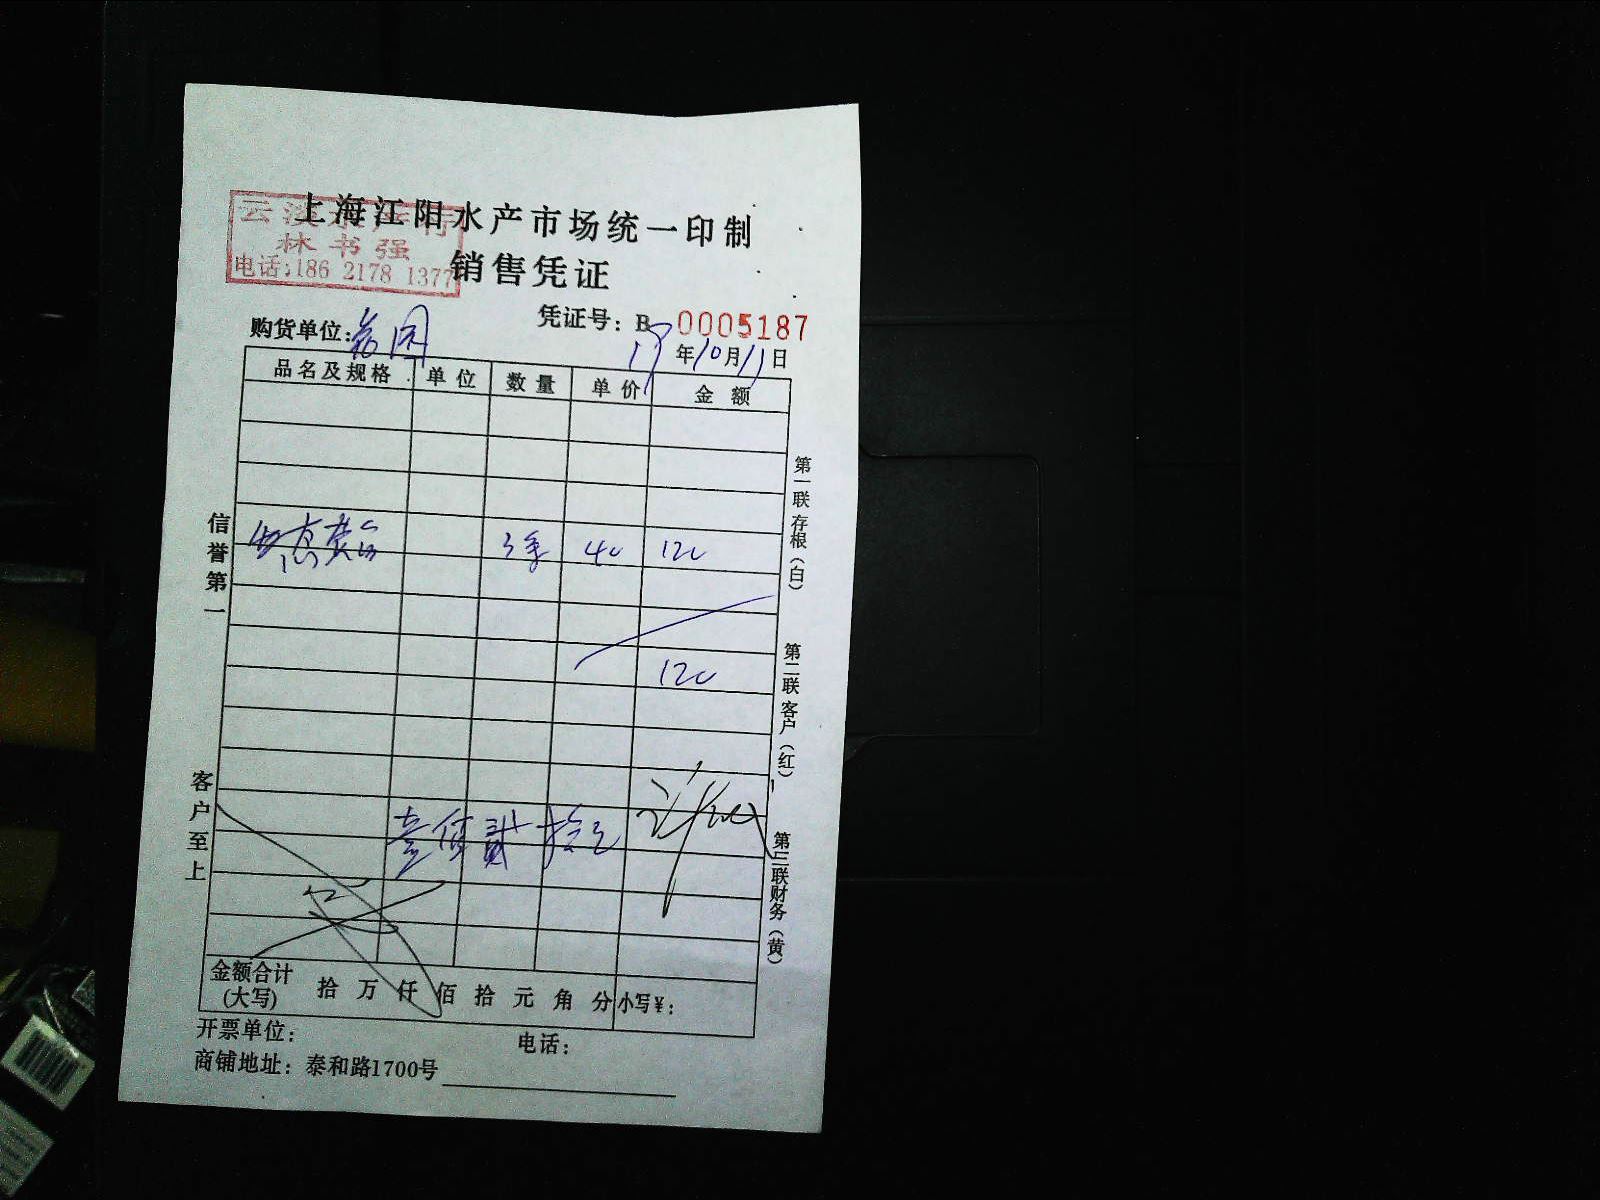 上海江阳水产市场统一印制
林书强
电话:186 2178 1377
销售凭证
凭证号：B 0005187
购货单位:
年10月11日
品名及规格 单位 数量 单价 金额
40 120
120
壹佰贰拾元
金额合计(大写) 拾 万 仟 佰 拾 元 角 分 小写¥：
开票单位： 电话：
商铺地址：泰和路1700号
信誉第一
客户至上
第一联存根(白)
第二联客户(红)
第三联财务(黄)